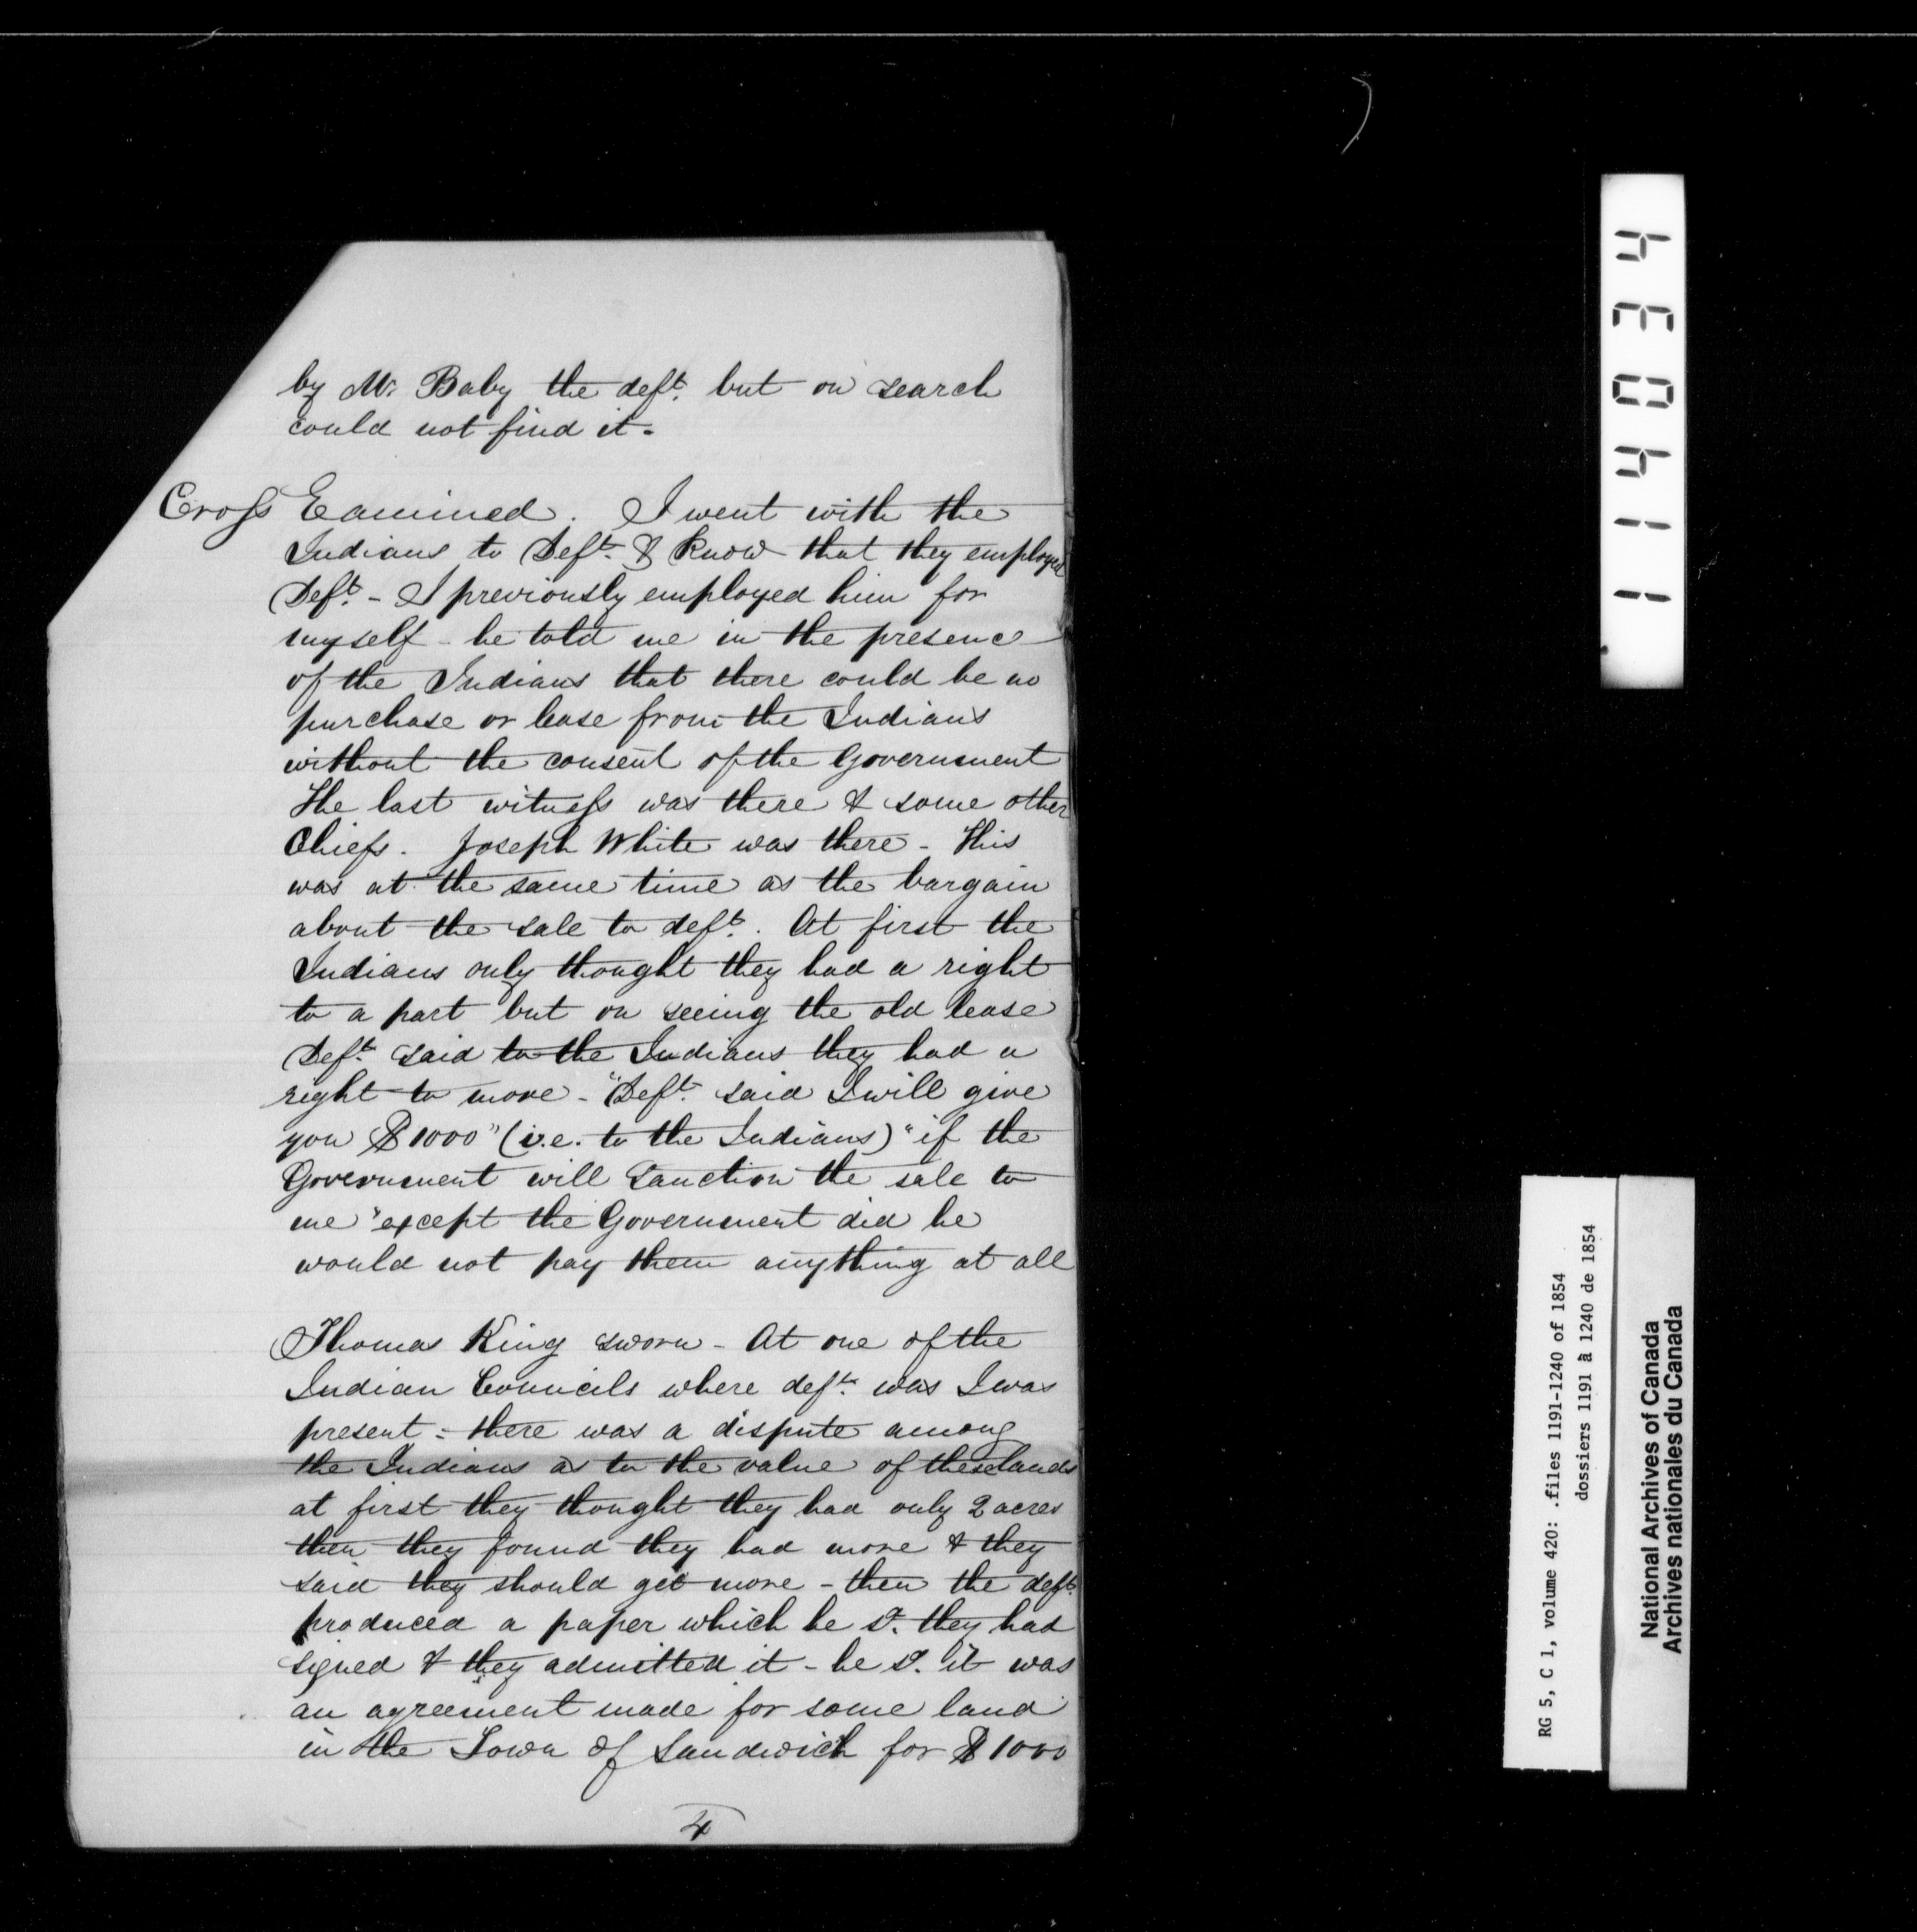 by Mr. Baby the deft. but on search
could not find it.
Cross Eamined. I went with the
Indians to Deft. & know that they employed
Deft. - I previously employed him for
myself - he told me in the presence
of the Indians that there could be no
purchase or lease from the Indians
without the consent of the Government
The last witness was there & some other
Chiefs. Joseph White was there - This
was at the same time as the bargain
about the sale to deft. At first the
Indians only thought they had a right
to a part but on seeing the old lease
Deft. said to the Indians they had a
right to more - "Deft. said I will give
you $1000" (i.e. to the Indians) "if the
Government will sanction the sale to
me" except the Government did he
would not pay them anything at all
Thomas King sworn - At one of the
Indian Councils where deft. was I was
present - there was a dispute among
the Indians as to the value of these lands
at first they thought they had only 2 acres
then they found they had more & they
said they should get more - then the deft.
produced a paper which he sd. they had
signed & they admitted it - he sd. it was
an agreement made for some land
in the Town of Sandwich for $1000
4
114034
RG 5, C 1, volume 420: .files 1191-1240 of 1854
dossiers 1191 à 1240 de 1854
National Archives of Canada
Archives nationales du Canada